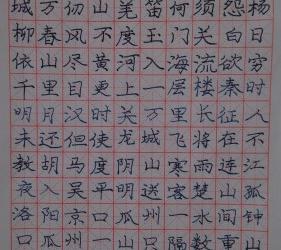 城万仞山羌笛何须怨杨
柳春风不度玉门关白日
依山尽黄河入海流欲穷
千里目更上一层楼秦时
明月汉时关万里长征人
未还但使龙城飞将在不
教胡马度阴山寒雨连江
夜入吴平明送客楚山孤